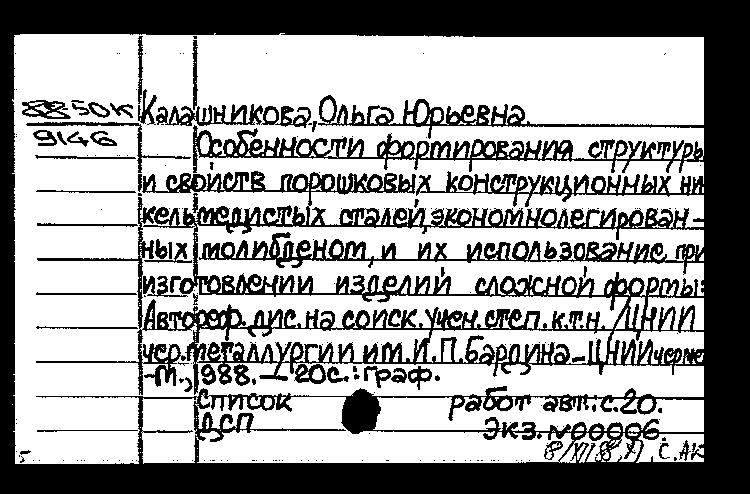 88-50К Калашникова, Ольга Юрьевна.
9146
Особенности формирования структуры
и свойств порошковых конструкционных ни-
кельмедистых сталей, экономнолегирован-
ных молибденом, и их использование при
изготовлении изделий сложной формы:
Автореф. дис. на соиск. учен. степ. к.т.н. /ЦНИИ
чер. металлургии им. И.П. Бардина-ЦНИИчермет
-М., 1988. - 20с.: граф.
список работ авт.: с.20.
ДСП Экз. №00006.